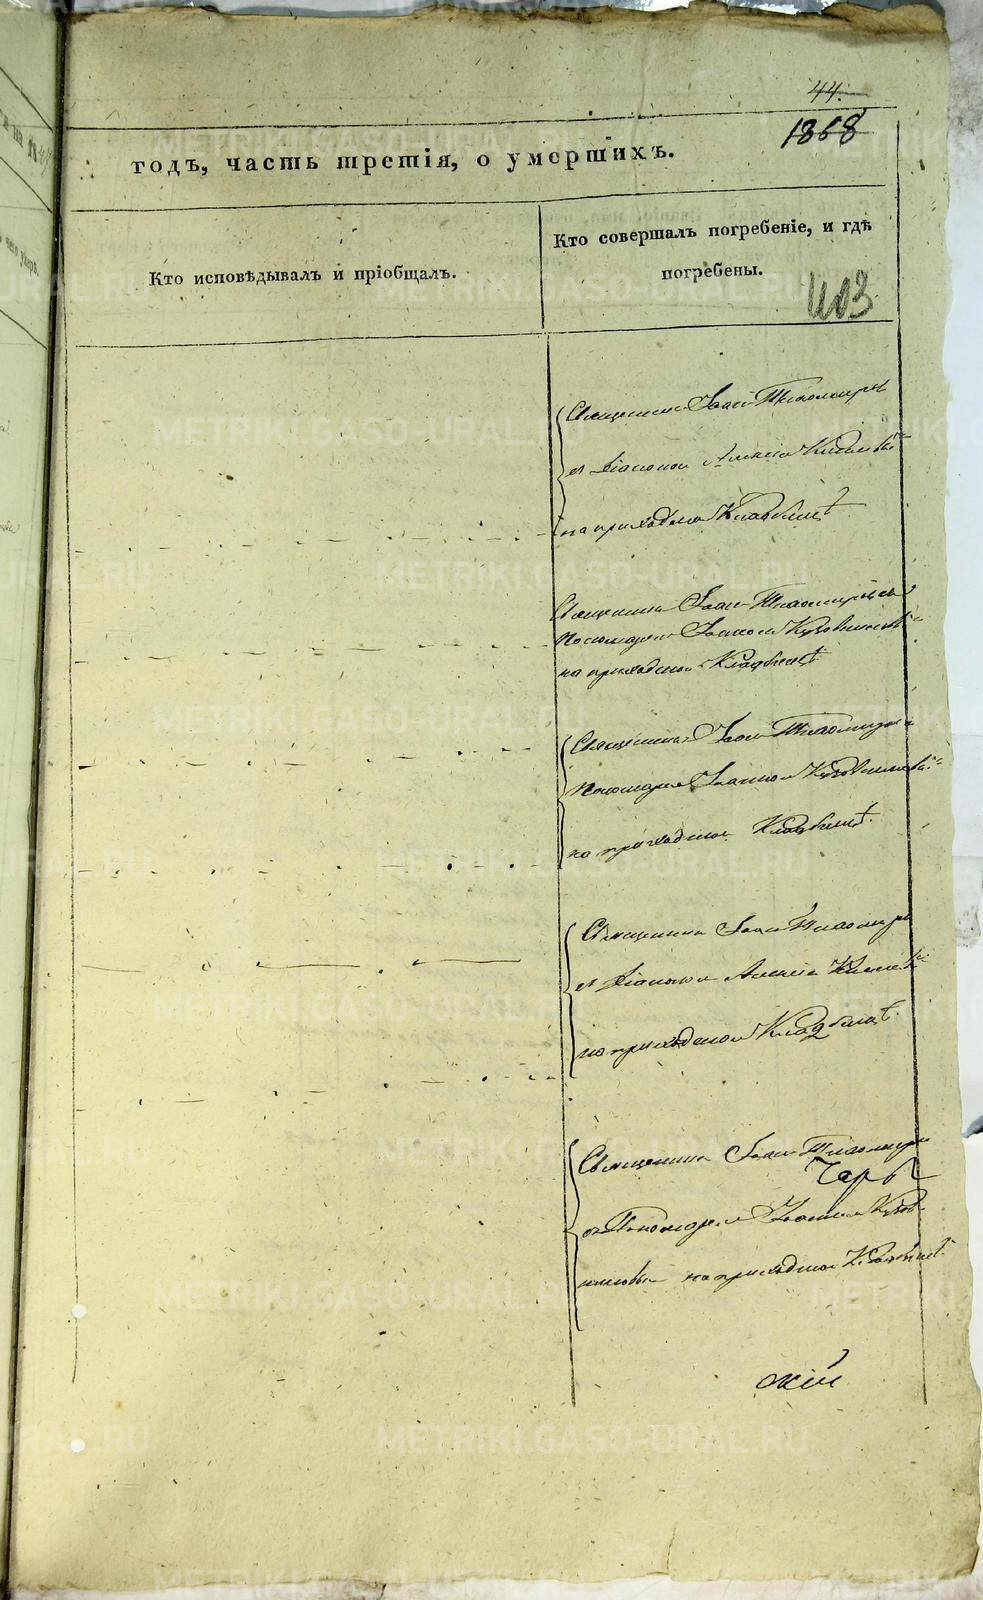 44.
1868
годъ, часть третія, о умершихъ.
Кто исповѣдывалъ и пріобщалъ.
Кто совершалъ погребеніе, и гдѣ
погребены.
403
Священникъ Іоаннъ Тихомировъ
съ Діакономъ Алексіемъ
на приходскомъ Кладбищѣ
Священникъ Іоаннъ Тихомировъ съ
Пономаремъ Іоанномъ
на приходскомъ Кладбищѣ
Священникъ Іоаннъ Тихомировъ
Пономаремъ Іоанномъ
на приходскомъ Кладбищѣ.
Священникъ Іоаннъ Тихомировъ
съ Діакономъ Алексіемъ
на приходскомъ Кладбищѣ.
Священникъ Іоаннъ Тихомировъ
съ Пономаремъ Іоанномъ
на приходскомъ Кладбищѣ.
скій
METRIKI.GASO-URAL.RU